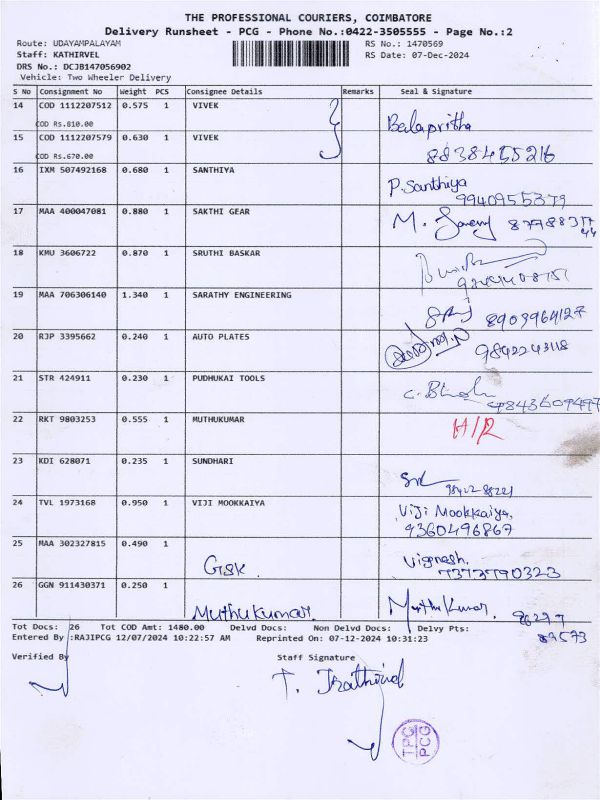 THE PROFESSIONAL COURIERS, COIMBATORE
Delivery Runsheet - PCG - Phone No.:0422-3505555 - Page No.:2
Route: UDAYAMPALAYAM RS No.: 1470569
Staff: KATHIRVEL RS Date: 07-Dec-2024
DRS No.: DCJB147056902
Vehicle: Two Wheeler Delivery
S No Consignment No Weight PCS Consignee Details Remarks Seal & Signature
14 COD 1112207512 0.575 1 VIVEK
COD Rs.810.00 Balapritha
15 COD 1112207579 0.630 1 VIVEK
COD Rs.670.00 8838455216
16 IXM 507492168 0.680 1 SANTHIYA
P. Santhiya
9940955379
17 MAA 400047081 0.880 1 SAKTHI GEAR
M.
18 KMU 3606722 0.870 1 SRUTHI BASKAR
19 MAA 706306140 1.340 1 SARATHY ENGINEERING
8903964127
20 RJP 3395662 0.240 1 AUTO PLATES
9842243118
21 STR 424911 0.230 1 PUDHUKAI TOOLS
9843609497
22 RKT 9803253 0.555 1 MUTHUKUMAR
H/R
23 KDI 628071 0.235 1 SUNDHARI
24 TVL 1973168 0.950 1 VIJI MOOKKAIYA
Viji Mookkaiya.
9360496867
25 MAA 302327815 0.490 1
Gsk. Vignesh.
7373790323
26 GGN 911430371 0.250 1
Muthukumar. Muthu Kumar. 86297
89573
Tot Docs: 26 Tot COD Amt: 1480.00 Delvd Docs: Non Delvd Docs: Delvy Pts:
Entered By :RAJIPCG 12/07/2024 10:22:57 AM Reprinted On: 07-12-2024 10:31:23
Verified By Staff Signature
TPC
PCG